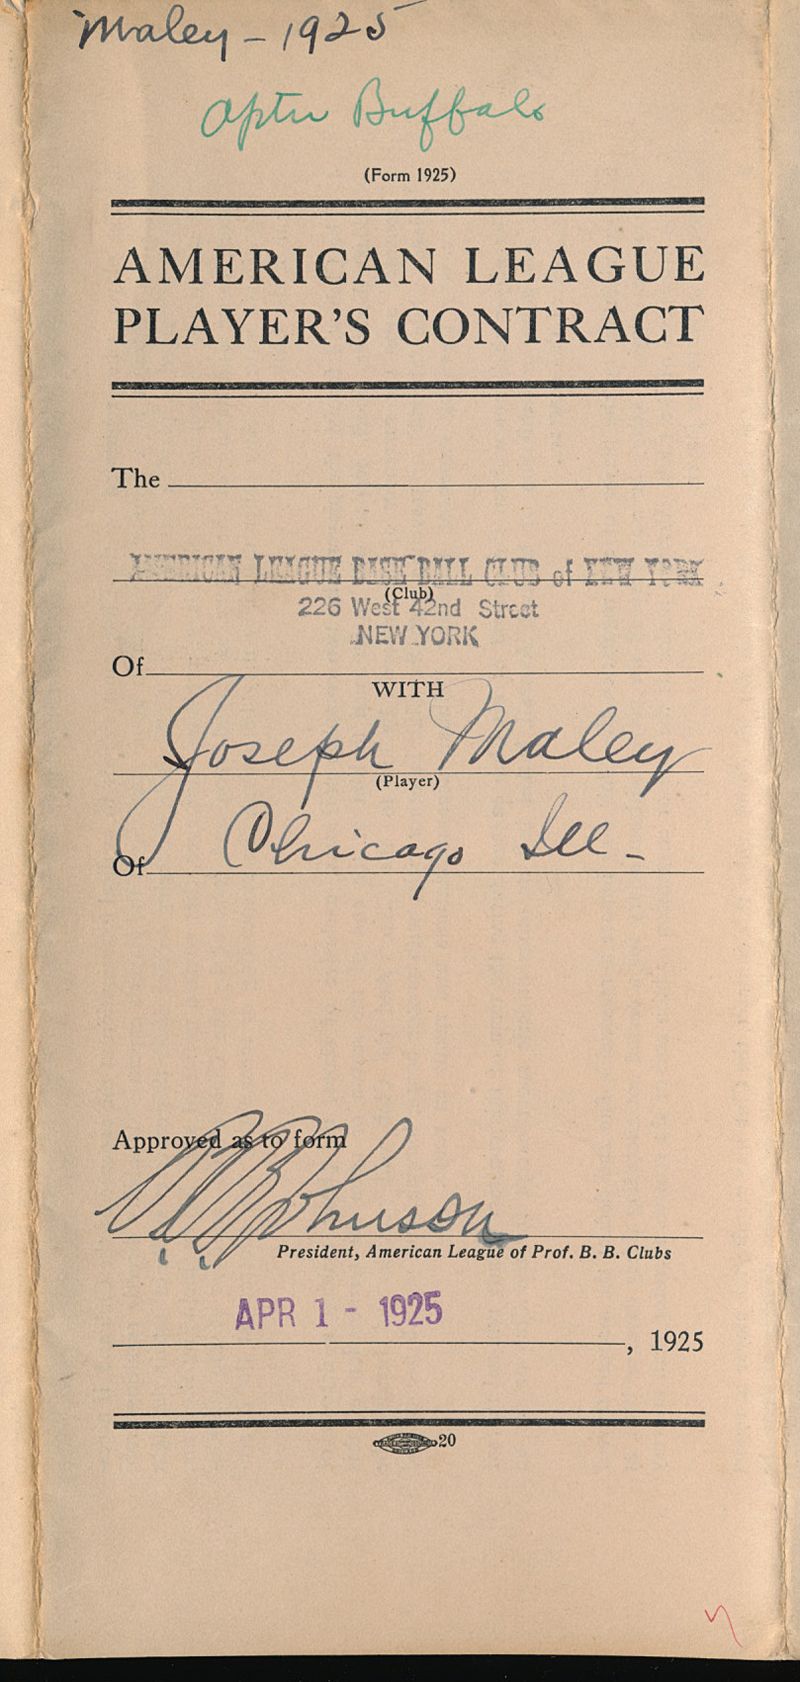 Maley - 1925
Optn Buffalo
(Form 1925)
AMERICAN LEAGUE
PLAYER'S CONTRACT
The
AMERICAN LEAGUE BASE BALL CLUB of NEW YORK
(Club)
226 West 42nd Street
NEW YORK
Of
WITH
Joseph Maley
(Player)
Of Chicago Ill -
Approved as to form
B B Johnson
President, American League of Prof. B. B. Clubs
APR 1 - 1925
, 1925
20